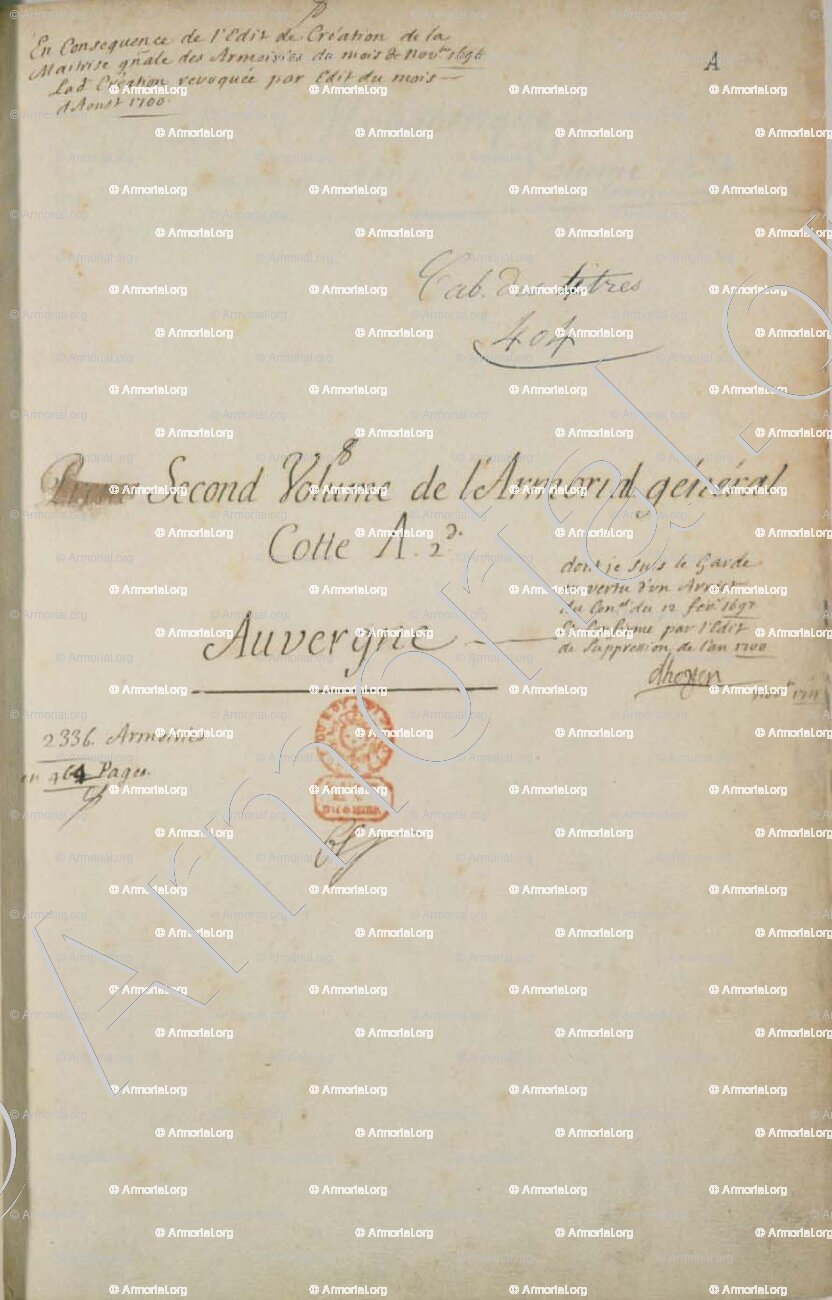 En Consequence de l'Edit de Création de la
Maitrise gñale des Armoiries du mois de Nov.bre 1696
Lad. Création revoquée par Edit du mois
d'Aoust 1700.
A
Cab. des titres
404
8
Second Volume de l'Armorial général
Cotte A. 2d.
Auvergne
dont je suis le Garde
en vertu d'un Arrest
du Con.el du 12 fev. 1697
et Confirmé par l'Edit
de Suppression de l'an 1700
dhozier
1711
2336. Armoiries
en 464 Pages.
© Armorial.org